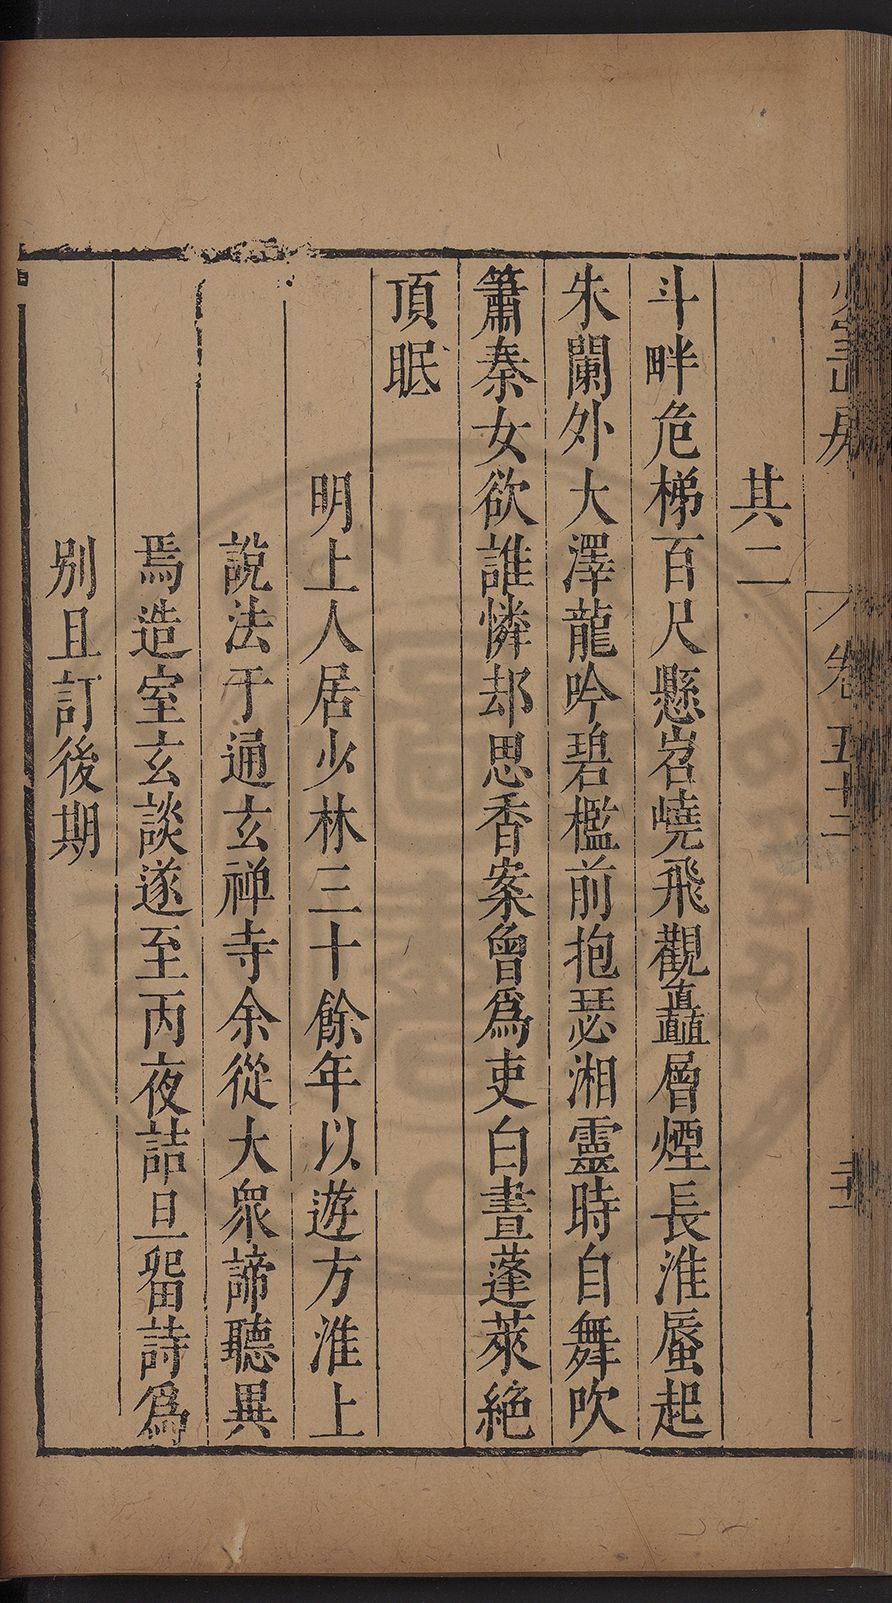 少室山房
卷五十二
其二
斗畔危梯百尺懸岧嶢飛觀矗層煙長淮蜃起
朱闌外大澤龍吟碧檻前抱瑟湘靈時自舞吹
簫秦女欲誰憐却思香案曾爲吏白晝蓬萊絶
頂眠
明上人居少林三十餘年以遊方淮上
說法于通玄禅寺余從大衆諦聽異
焉造室玄談遂至丙夜詰旦畱詩爲
別且訂後期